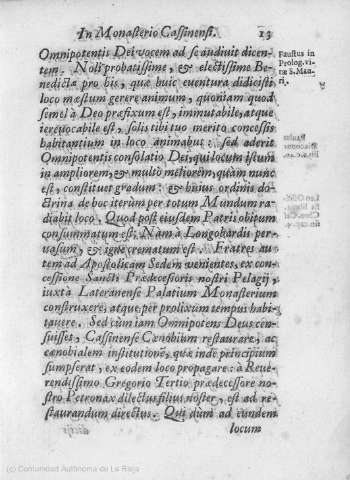 In Monasterio Cassinensi. 13
Omnipotentis Dei vocem ad se audivit dicen-
tem. Noli probatissime, & electissime Be-
nedicte pro his, quæ huic eventura didicisti
loco mæstum gerere animum, quoniam quod
semel à Deo præfixum est, immutabile, atque
irrevocabile est, solis tibi tuo merito concessis
habitantium in loco animabus: sed aderit
Omnipotentis consolatio Dei, qui locum istum
in ampliorem, & multò meliorem, quàm nunc
est, constituet gradum: & huius ordinis do-
ctrina de hoc iterùm per totum Mundum ra-
diabit loco, Quod post eiusdem Patris obitum
consummatum est. Nam à Longobardis per-
vasum, & igne crematum est. Fratres au-
tem ad Apostolicam Sedem venientes, ex con-
cessione Sancti Prædecessoris nostri Pelagij,
iuxtà Lateranense Palatium Monasterium
construxere, atque per prolixum tempus habi-
tavere. Sed cùm iam Omnipotens Deus cen-
suisset, Cassinense Cœnobium restaurare, ac
cœnobialem institutionem, quæ inde principium
sumpserat, ex eodem loco propagare: à Reve-
rendissimo Gregorio Tertio prædecessore no-
stro Petronax dilectus filius noster, est ad re-
staurandum directus. Qui dùm ad eundem
locum
Faustus in
Prolog. vi-
tæ S. Mau-
ri.
(c) Comunidad Autónoma de La Rioja